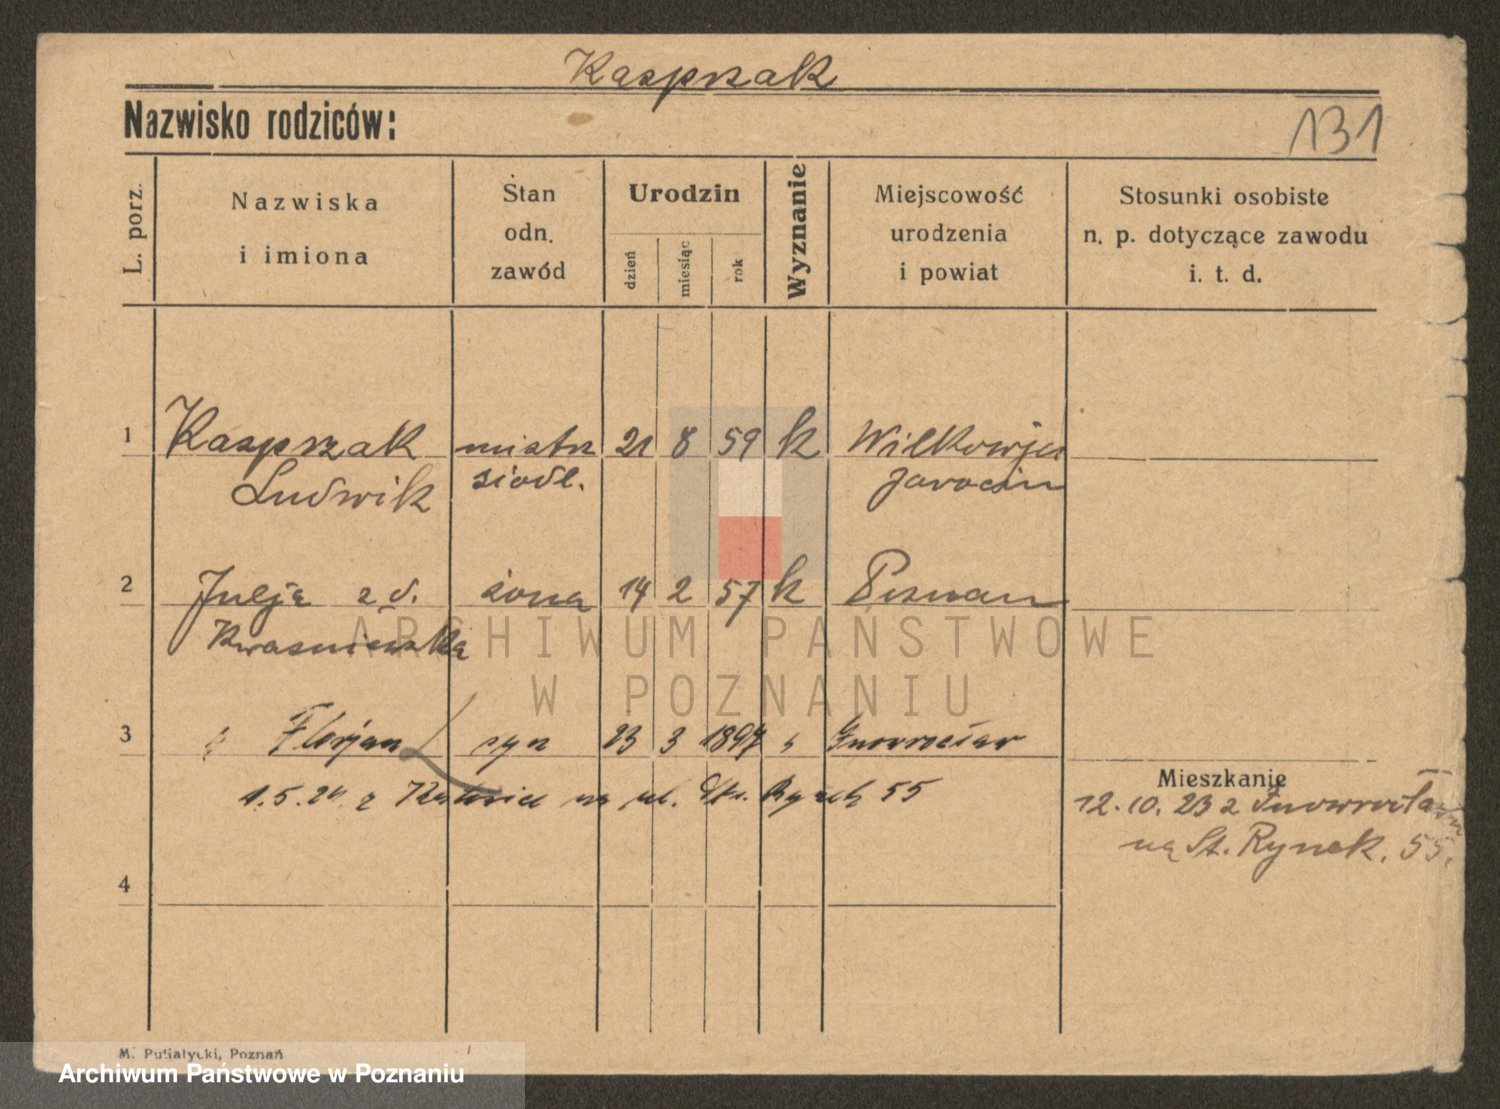 Kasprzak
Nazwisko rodziców:
131
L. porz.
Nazwiska
i imiona
Stan
odn.
zawód
Urodzin
dzień
miesiąc
rok
Wyznanie
Miejscowość
urodzenia
i powiat
Stosunki osobiste
n. p. dotyczące zawodu
i. t. d.
1 Kasprzak mistrz 21 8 59 k Wilkowyja
Ludwik siodł. Jarocin
2 Julja z d. żona 14 2 57 k Poznań
Kwaśniewska
3 Florjan syn 23 3 1897 Inowrocław
1.5.24 z Katowice na ul. St. Rynek 55
Mieszkanie
12.10.23 z Inowrocławia
na St. Rynek. 55.
4
ARCHIWUM PAŃSTWOWE
W POZNANIU
M. Putiatycki, Poznań
Archiwum Państwowe w Poznaniu